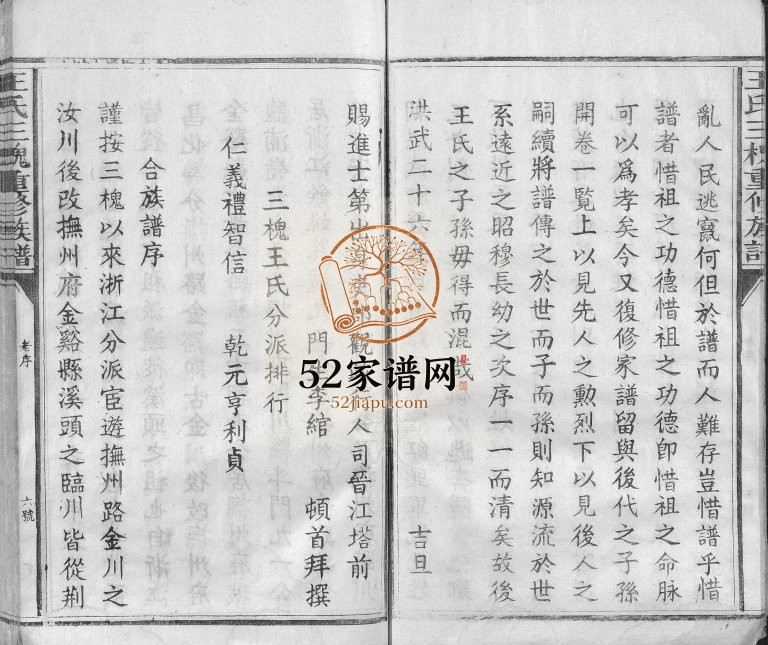 王氏三槐重修族譜
亂人民逃竄何但於譜而人難存豈惜譜乎惜
譜者惜祖之功德惜祖之功德卽惜祖之命脉
可以爲孝矣今又復修家譜留與後代之子孫
開卷一覽上以見先人之勳烈下以見後人之
嗣續將譜傳之於世而子而孫則知源流於世
系遠近之昭穆長幼之次序一一而清矣故後
王氏之子孫毋得而混哉
洪武二十六年 吉旦
賜進士第出身 觀 人司晉江塔前
門生李綰 頓首拜撰
三槐王氏分派排行
仁義禮智信 乾元亨利貞
合族譜序
謹按三槐以來浙江分派宦遊撫州路金川之
汝川後改撫州府金谿縣溪頭之臨川皆從荆
王氏三槐重修族譜
老序
六號
52家谱网
52jiapu.com